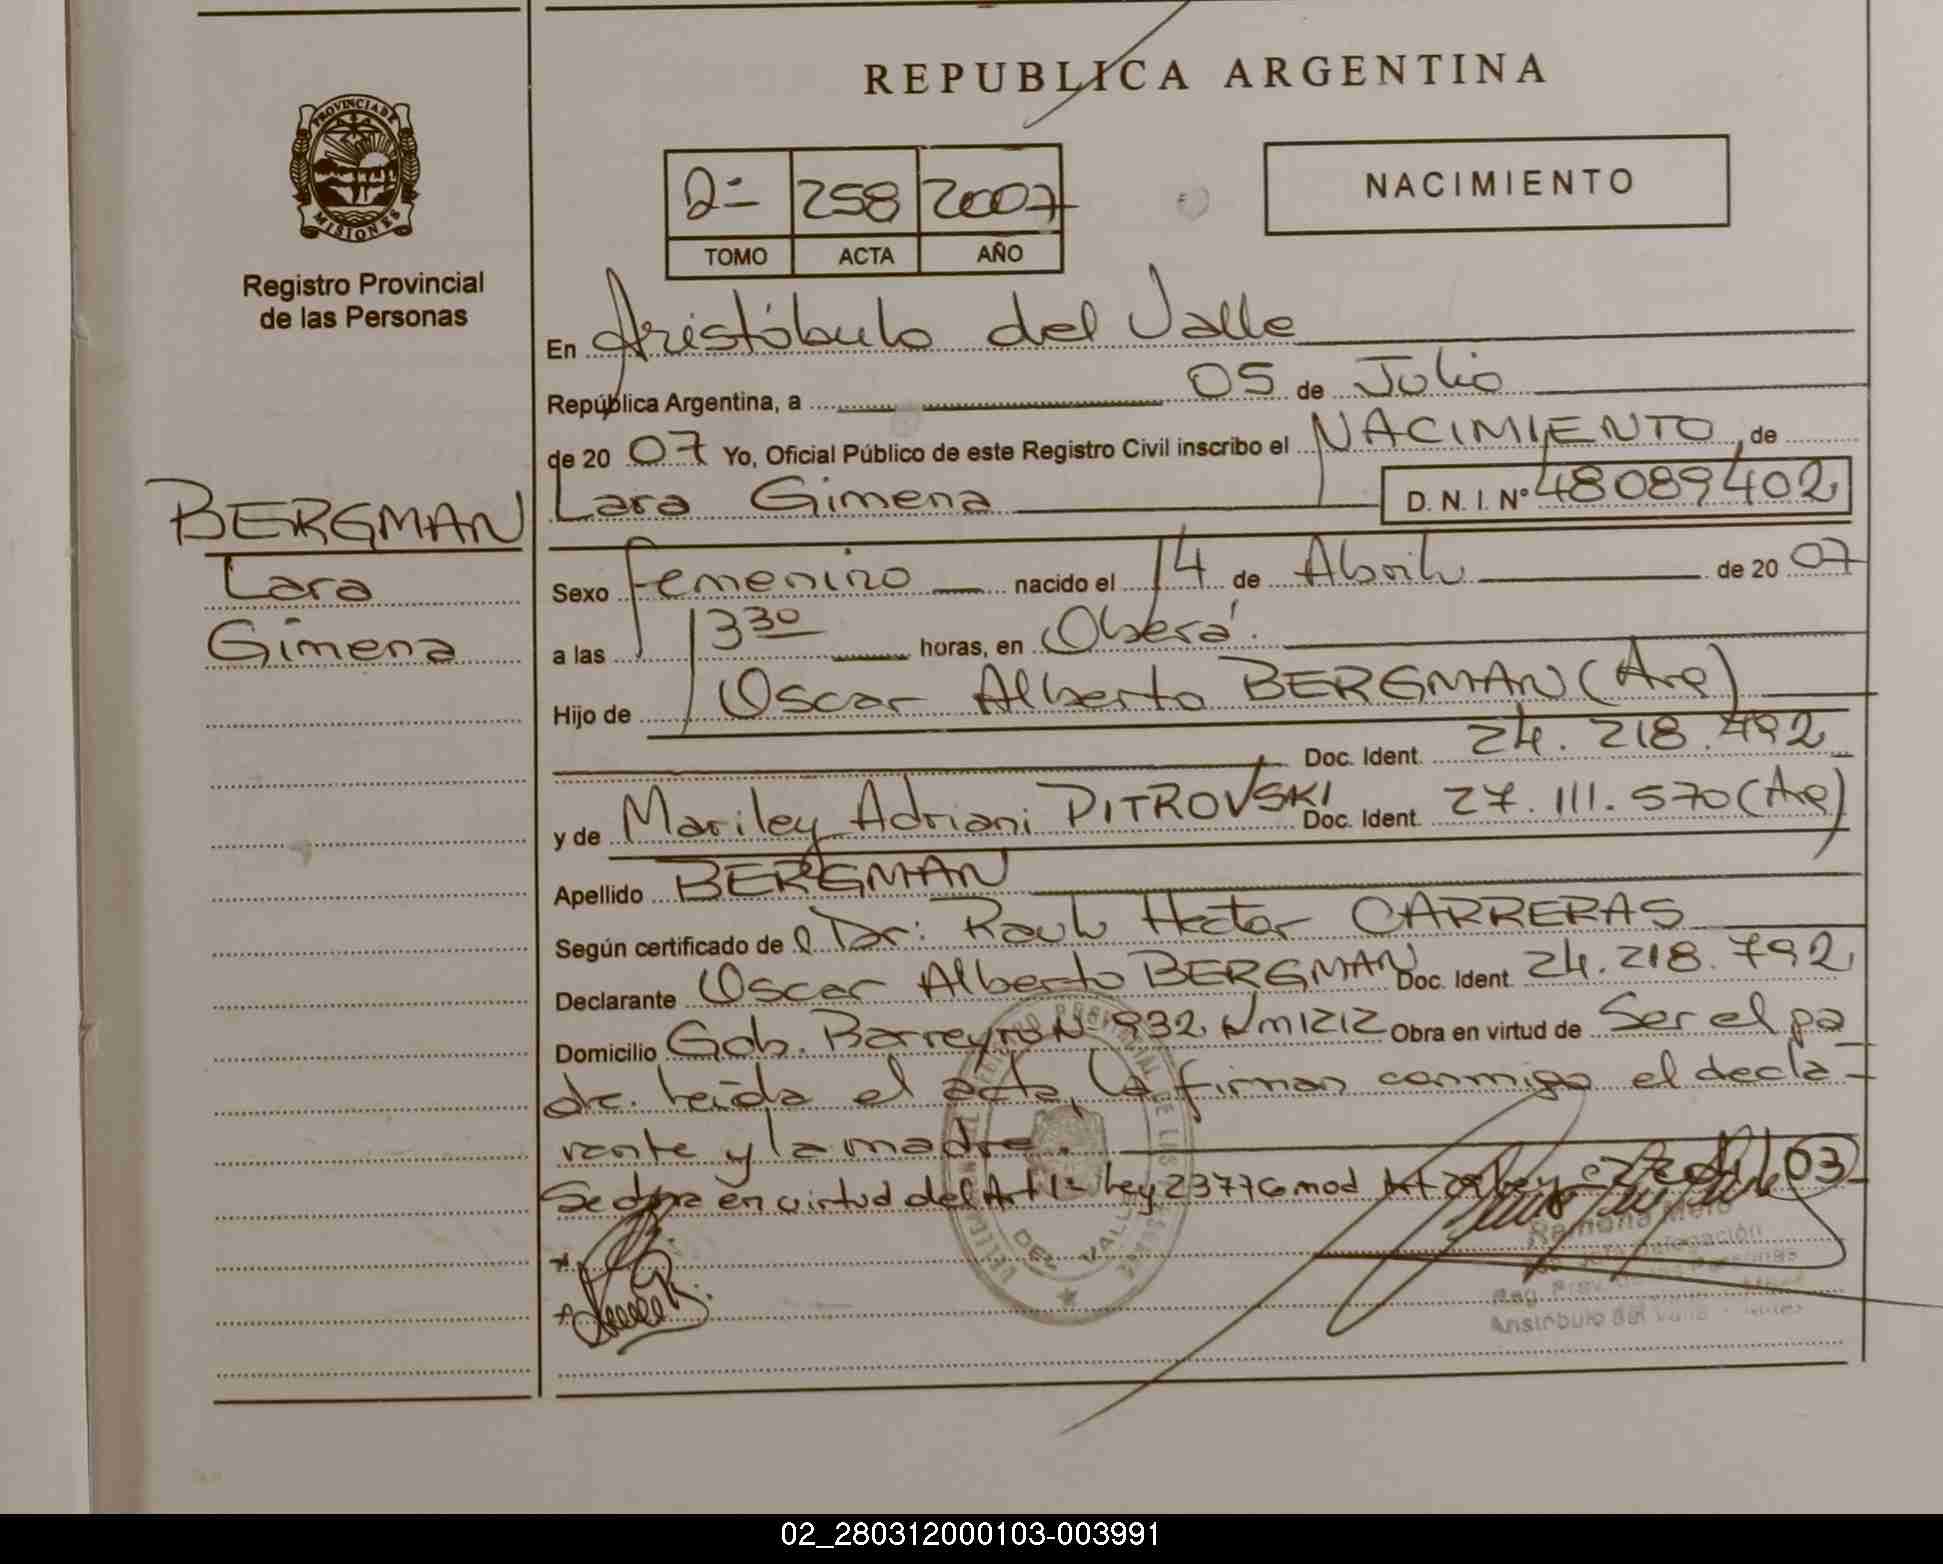 REPUBLICA ARGENTINA
PROVINCIA DE MISIONES
Registro Provincial
de las Personas
2= 258 2007
TOMO ACTA AÑO
NACIMIENTO
BERGMAN
Lara
Gimena
En Aristóbulo del Valle
República Argentina, a 05 de Julio
de 20 07 Yo, Oficial Público de este Registro Civil inscribo el NACIMIENTO, de
Lara Gimena D. N. I. Nº 48089402
Sexo femenino nacido el 14 de Abril de 20 07
a las 13 30 horas, en Oberá.
Hijo de Oscar Alberto BERGMAN (Arg)
Doc. Ident. 24.218.792
y de Mariley Adriani PITROVSKI Doc. Ident. 27.111.570 (Arg)
Apellido BERGMAN
Según certificado de Dr: Raul Hector CARRERAS
Declarante Oscar Alberto BERGMAN Doc. Ident. 24.218.792
Domicilio Gob. Barreyro N 932 Obra en virtud de Ser el pa
dre. leida el acta, la firman conmigo el decla
rante y la madre.
Se obra en virtud del Art 1= Ley 23776 mod Art 03
DEL VALLE
Ramona Melo
Delegación
Reg. Prov. de las Personas
Aristóbulo del Valle
02_280312000103-003991